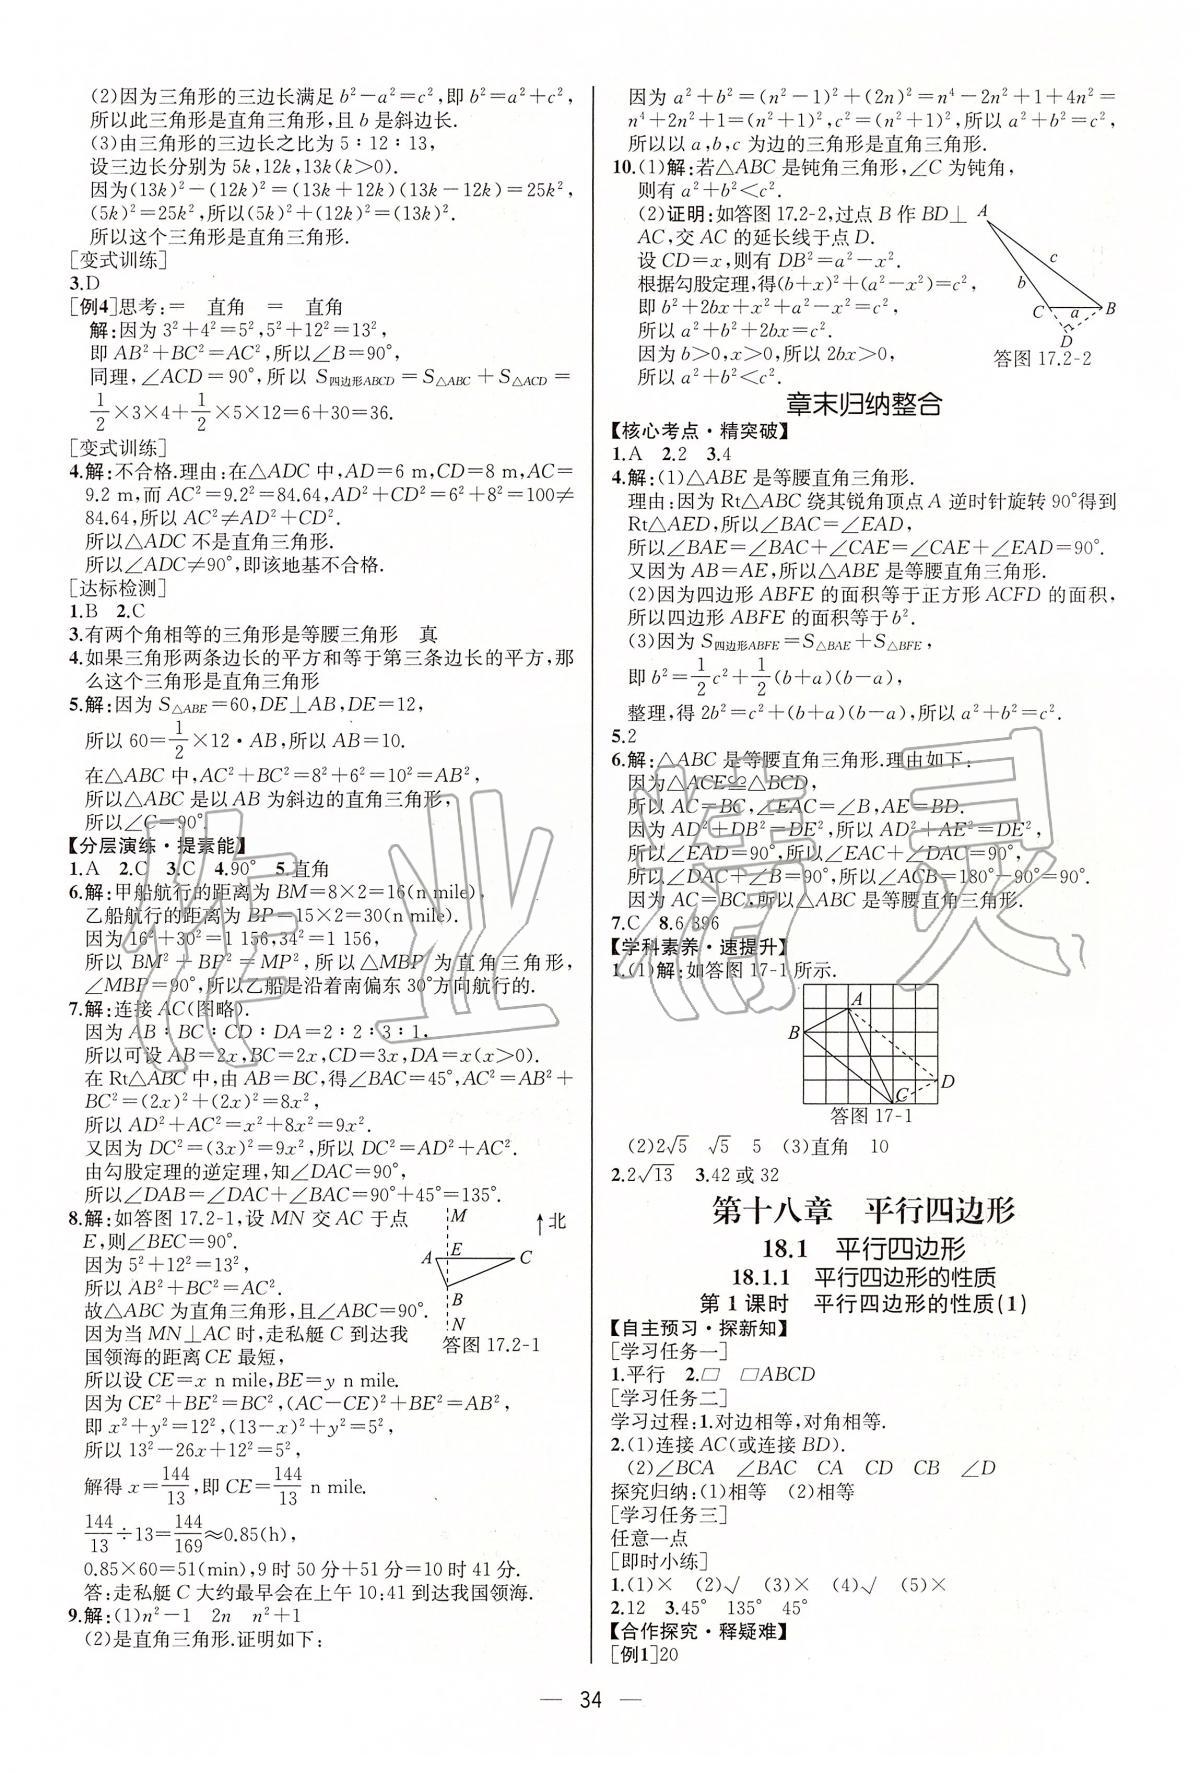 (2)因为三角形的三边长满足 b²-a²=c²,即 b²=a²+c²,
所以此三角形是直角三角形,且 b 是斜边长.
(3)由三角形的三边长之比为 5∶12∶13,
设三边长分别为 5k,12k,13k(k>0).
因为(13k)²-(12k)²=(13k+12k)(13k-12k)=25k²,
(5k)²=25k²,所以(5k)²+(12k)²=(13k)².
所以这个三角形是直角三角形.
[变式训练]
3.D
[例4]思考:= 直角 = 直角
解:因为 3²+4²=5²,5²+12²=13²,
即 AB²+BC²=AC²,所以∠B=90°,
同理,∠ACD=90°,所以 S四边形ABCD=S△ABC+S△ACD=
1/2×3×4+1/2×5×12=6+30=36.
[变式训练]
4.解:不合格.理由:在△ADC 中,AD=6 m,CD=8 m,AC=
9.2 m,而 AC²=9.2²=84.64,AD²+CD²=6²+8²=100≠
84.64,所以 AC²≠AD²+CD².
所以△ADC 不是直角三角形.
所以∠ADC≠90°,即该地基不合格.
[达标检测]
1.B 2.C
3.有两个角相等的三角形是等腰三角形 真
4.如果三角形两条边长的平方和等于第三条边长的平方,那
么这个三角形是直角三角形
5.解:因为 S△ABE=60,DE⊥AB,DE=12,
所以 60=1/2×12·AB,所以 AB=10.
在△ABC 中,AC²+BC²=8²+6²=10²=AB²,
所以△ABC 是以 AB 为斜边的直角三角形,
所以∠C=90°
【分层演练·提素能】
1.A 2.C 3.C 4.90° 5.直角
6.解:甲船航行的距离为 BM=8×2=16(n mile),
乙船航行的距离为 BP=15×2=30(n mile).
因为 16²+30²=1 156,34²=1 156,
所以 BM²+BP²=MP²,所以△MBP 为直角三角形,
∠MBP=90°,所以乙船是沿着南偏东 30°方向航行的.
7.解:连接 AC(图略).
因为 AB∶BC∶CD∶DA=2∶2∶3∶1,
所以可设 AB=2x,BC=2x,CD=3x,DA=x(x>0).
在 Rt△ABC 中,由 AB=BC,得∠BAC=45°,AC²=AB²+
BC²=(2x)²+(2x)²=8x²,
所以 AD²+AC²=x²+8x²=9x².
又因为 DC²=(3x)²=9x²,所以 DC²=AD²+AC².
由勾股定理的逆定理,知∠DAC=90°,
所以∠DAB=∠DAC+∠BAC=90°+45°=135°.
8.解:如答图 17.2-1,设 MN 交 AC 于点
E,则∠BEC=90°.
因为 5²+12²=13²,
所以 AB²+BC²=AC².
故△ABC 为直角三角形,且∠ABC=90°.
因为当 MN⊥AC 时,走私艇 C 到达我
国领海的距离 CE 最短,
所以设 CE=x n mile,BE=y n mile.
因为 CE²+BE²=BC²,(AC-CE)²+BE²=AB²,
即 x²+y²=12²,(13-x)²+y²=5²,
所以 13²-26x+12²=5²,
解得 x=144/13,即 CE=144/13 n mile.
144/13÷13=144/169≈0.85(h),
0.85×60=51(min),9 时 50 分+51 分=10 时 41 分.
答:走私艇 C 大约最早会在上午 10:41 到达我国领海.
9.解:(1)n²-1 2n n²+1
(2)是直角三角形.证明如下:
M
↑北
A
E
C
B
N
答图 17.2-1
因为 a²+b²=(n²-1)²+(2n)²=n⁴-2n²+1+4n²=
n⁴+2n²+1=(n²+1)²,c²=(n²+1)²,所以 a²+b²=c²,
所以以 a,b,c 为边的三角形是直角三角形.
10.(1)解:若△ABC 是钝角三角形,∠C 为钝角,
则有 a²+b²<c².
(2)证明:如答图 17.2-2,过点 B 作 BD⊥
AC,交 AC 的延长线于点 D.
设 CD=x,则有 DB²=a²-x².
根据勾股定理,得(b+x)²+(a²-x²)=c²,
即 b²+2bx+x²+a²-x²=c²,
所以 a²+b²+2bx=c².
因为 b>0,x>0,所以 2bx>0,
所以 a²+b²<c².
A
c
b
C
a
B
D
答图 17.2-2
章末归纳整合
【核心考点·精突破】
1.A 2.2 3.4
4.解:(1)△ABE 是等腰直角三角形.
理由:因为 Rt△ABC 绕其锐角顶点 A 逆时针旋转 90°得到
Rt△AED,所以∠BAC=∠EAD,
所以∠BAE=∠BAC+∠CAE=∠CAE+∠EAD=90°.
又因为 AB=AE,所以△ABE 是等腰直角三角形.
(2)因为四边形 ABFE 的面积等于正方形 ACFD 的面积,
所以四边形 ABFE 的面积等于 b².
(3)因为 S四边形ABFE=S△BAE+S△BFE,
即 b²=1/2c²+1/2(b+a)(b-a),
整理,得 2b²=c²+(b+a)(b-a),所以 a²+b²=c².
5.2
6.解:△ABC 是等腰直角三角形.理由如下:
因为△ACE≌△BCD,
所以 AC=BC,∠EAC=∠B,AE=BD.
因为 AD²+DB²=DE²,所以 AD²+AE²=DE²,
所以∠EAD=90°,所以∠EAC+∠DAC=90°.
所以∠DAC+∠B=90°,所以∠ACB=180°-90°=90°.
因为 AC=BC,所以△ABC 是等腰直角三角形.
7.C 8.6 396
【学科素养·速提升】
1.(1)解:如答图 17-1所示.
A
B
D
C
答图 17-1
(2)2√5 √5 5 (3)直角 10
2.2√13 3.42 或 32
第十八章 平行四边形
18.1 平行四边形
18.1.1 平行四边形的性质
第 1 课时 平行四边形的性质(1)
【自主预习·探新知】
[学习任务一]
1.平行 2.▱ ▱ABCD
[学习任务二]
学习过程:1.对边相等,对角相等.
2.(1)连接 AC(或连接 BD).
(2)∠BCA ∠BAC CA CD CB ∠D
探究归纳:(1)相等 (2)相等
[学习任务三]
任意一点
[即时小练]
1.(1)× (2)√ (3)× (4)√ (5)×
2.12 3.45° 135° 45°
【合作探究·释疑难】
[例1]20
— 34 —
作业精灵